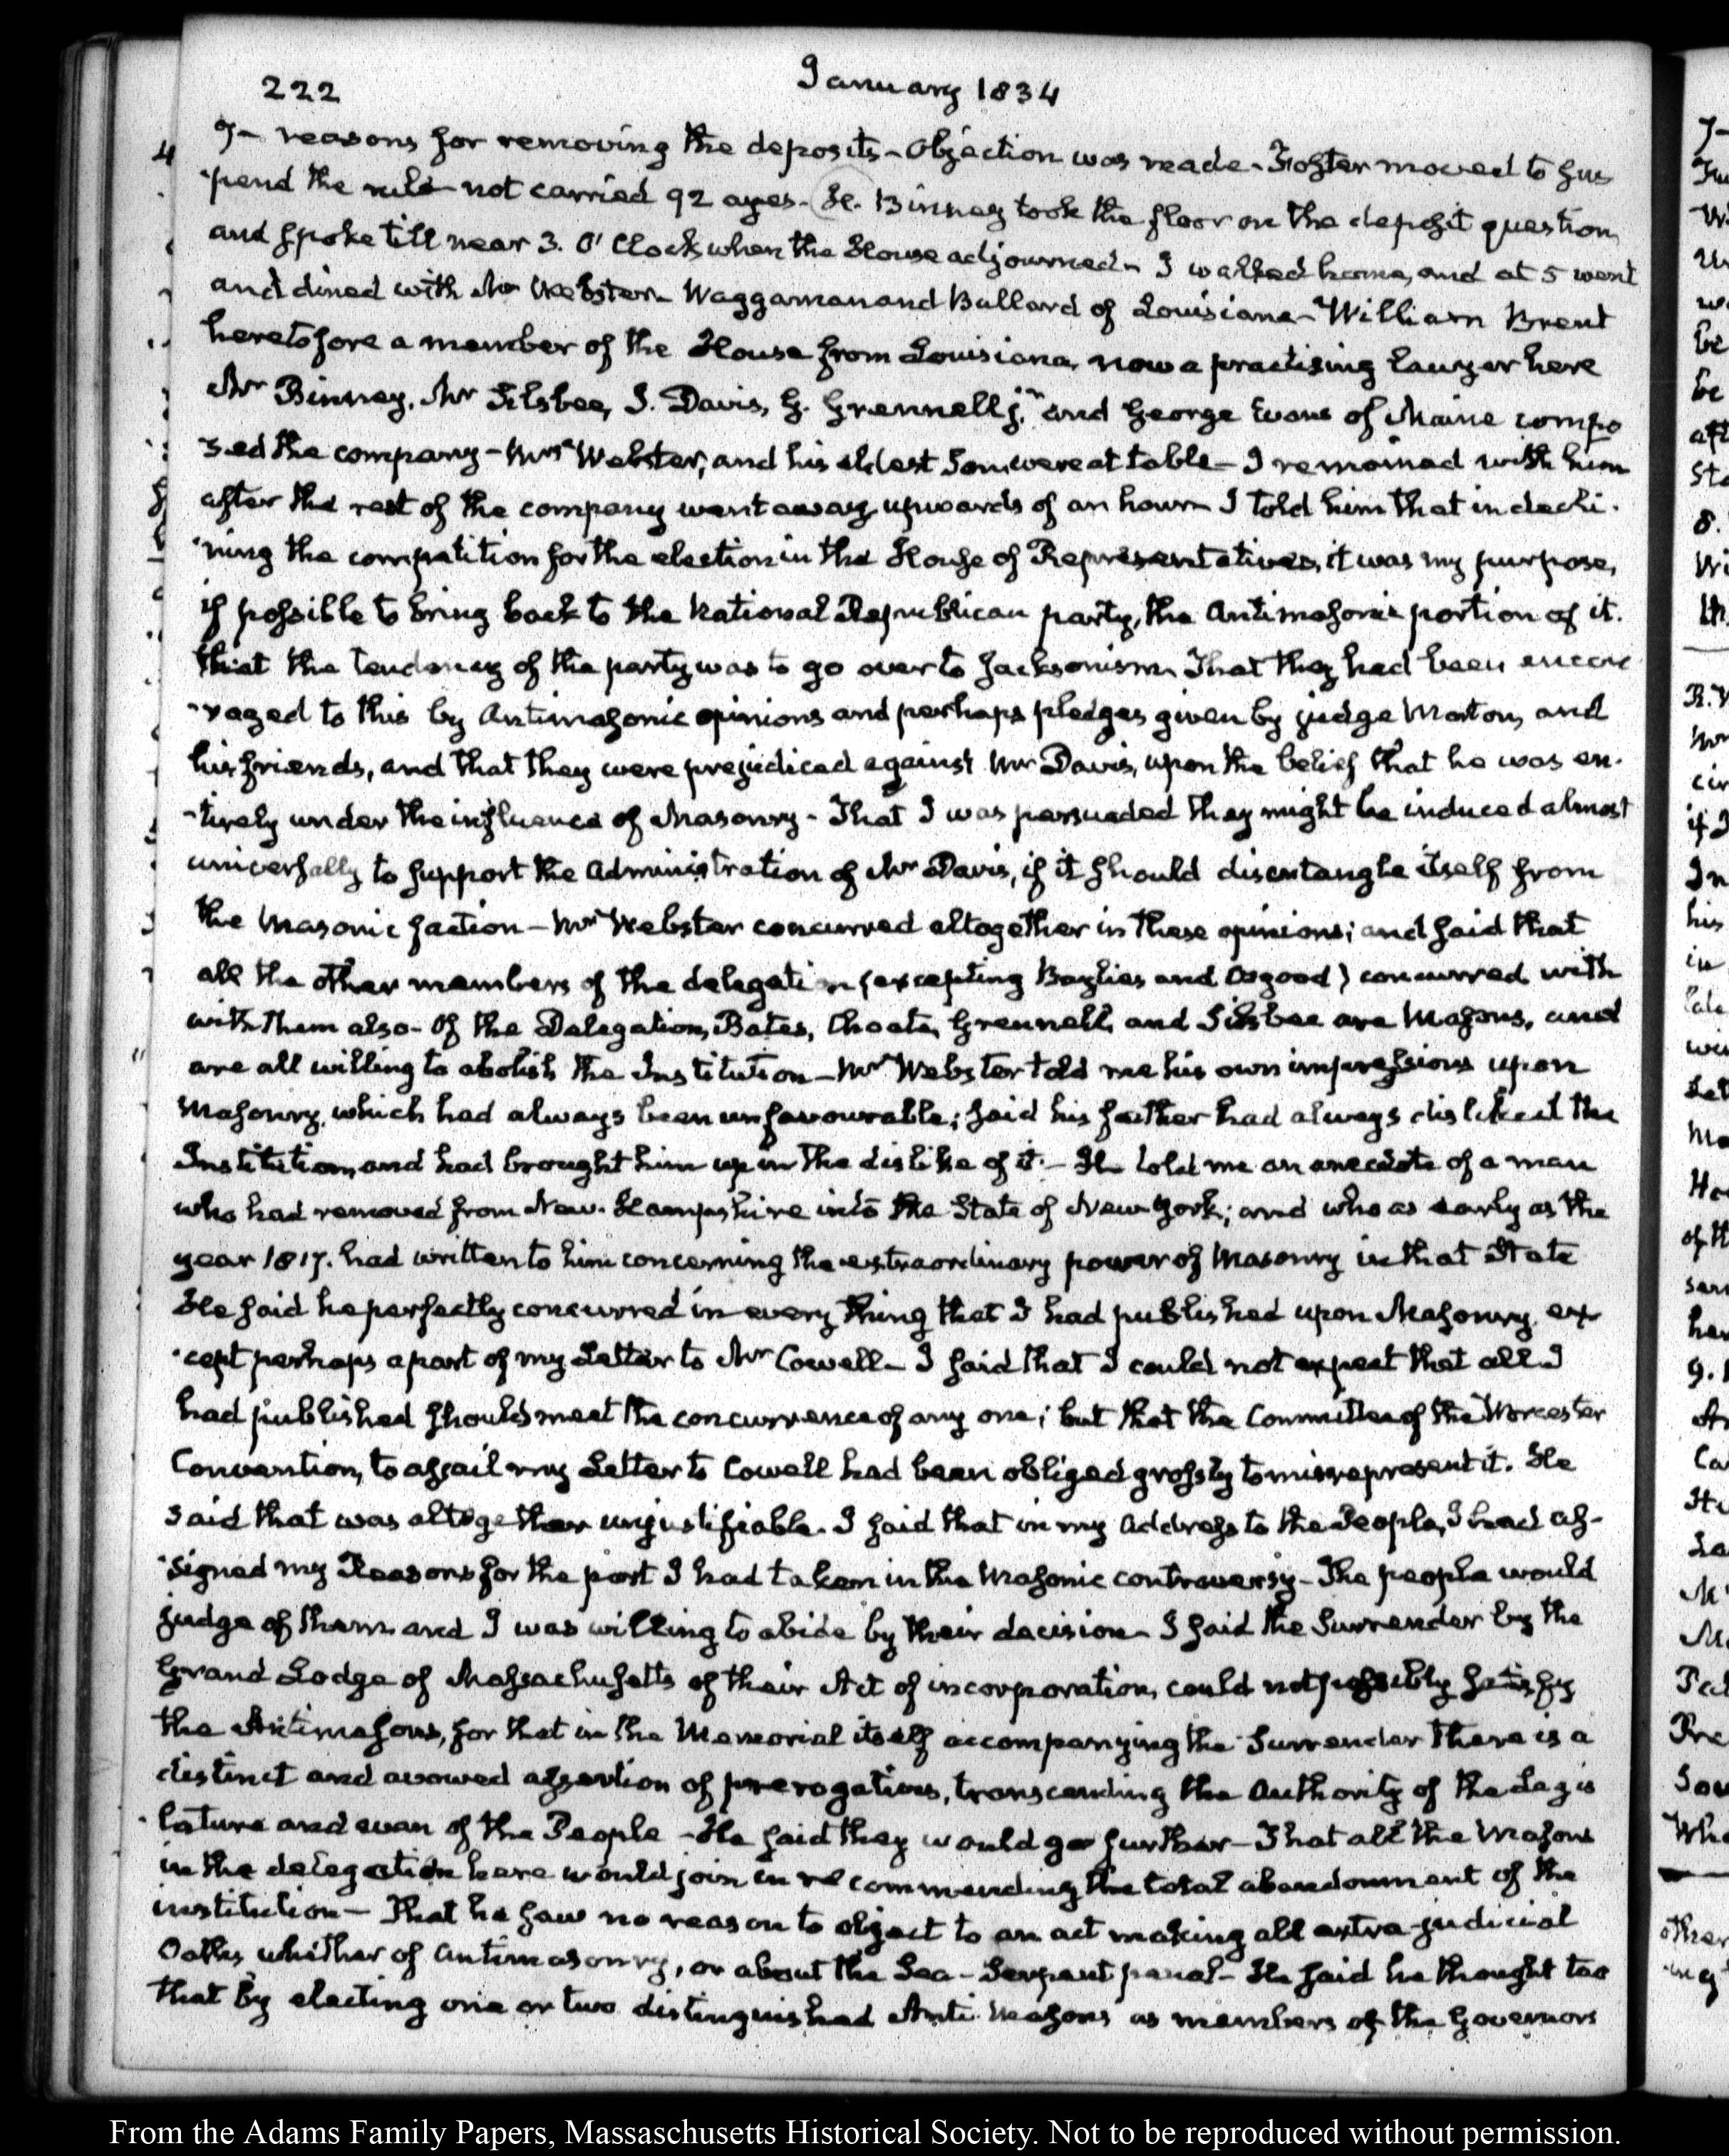 222
January 1834
7— reasons for removing the deposits— Objection was made— Foster moved to sus
-pend the rule— not carried 92 ayes— H. Binney took the floor on the deposit question
and spoke till near 3. O'Clock when the House adjourned— I walked home, and at 5 went
and dined with Mr Webster— Waggaman and Bullard of Louisiana— William Brent
heretofore a member of the House from Louisiana, now a practising lawyer here
Mr Binney, Mr Silsbee, J. Davis, G. Grennell jr and George Evans of Maine compo
sed the company— Mrs Webster, and his eldest Son were at table— I remained with him
after the rest of the company went away upwards of an hour— I told him that in decli-
-ning the competition for the election in the House of Representatives, it was my purpose,
if possible to bring back to the National Republican party, the Antimasonic portion of it.
that the tendency of the party was to go over to Jacksonism. That they had been encou
-raged to this by Antimasonic opinions and perhaps pledges given by judge Morton, and
his friends, and that they were prejudiced against Mr Davis, upon the belief that he was en-
-tirely under the influence of Masonry— That I was persuaded they might be induced almost
universally to support the Administration of Mr Davis, if it should disentangle itself from
the Masonic faction— Mr Webster concurred altogether in these opinions; and said that
all the other members of the delegation (excepting Baylies and Osgood) concurred with
with them also— Of the Delegation, Bates, Choate, Grennell, and Silsbee are Masons, and
are all willing to abolish the Institution— Mr Webster told me his own impressions upon
Masonry, which had always been unfavourable; said his father had always disliked the
Institution, and had brought him up in the dislike of it.— He told me an anecdote of a man
who had removed from New-Hampshire into the State of New York; and who as early as the
year 1817. had written to him concerning the extraordinary power of Masonry in that State
He said he perfectly concurred in every thing that I had published upon Masonry, ex
-cept perhaps a part of my Letter to Mr Cowell— I said that I could not expect that all I
had published should meet the concurrence of any one; but that the Committee of the Worcester
Convention, to assail my Letter to Cowell had been obliged grossly to misrepresent it. He
said that was altogether unjustifiable. I said that in my Address to the People, I had as-
-signed my Reasons for the part I had taken in the Masonic controversy— The people would
judge of them and I was willing to abide by their decision— I said the Surrender by the
Grand Lodge of Massachusetts of their Act of incorporation, could not possibly satisfy
the Antimasons, for that in the Memorial itself accompanying the Surrender there is a
distinct and avowed assertion of prerogatives, transcending the Authority of the Legis
-lature and even of the People— He said they would go further— That all the Masons
in the delegation here would join in recommending the total abandonment of the
institution— That he saw no reason to object to an act making all extra-judicial
Oaths whether of Antimasonry, or about the Sea-Serpent penal— He said he thought too
that by electing one or two distinguished Anti-Masons as members of the Governors
From the Adams Family Papers, Massachusetts Historical Society. Not to be reproduced without permission.